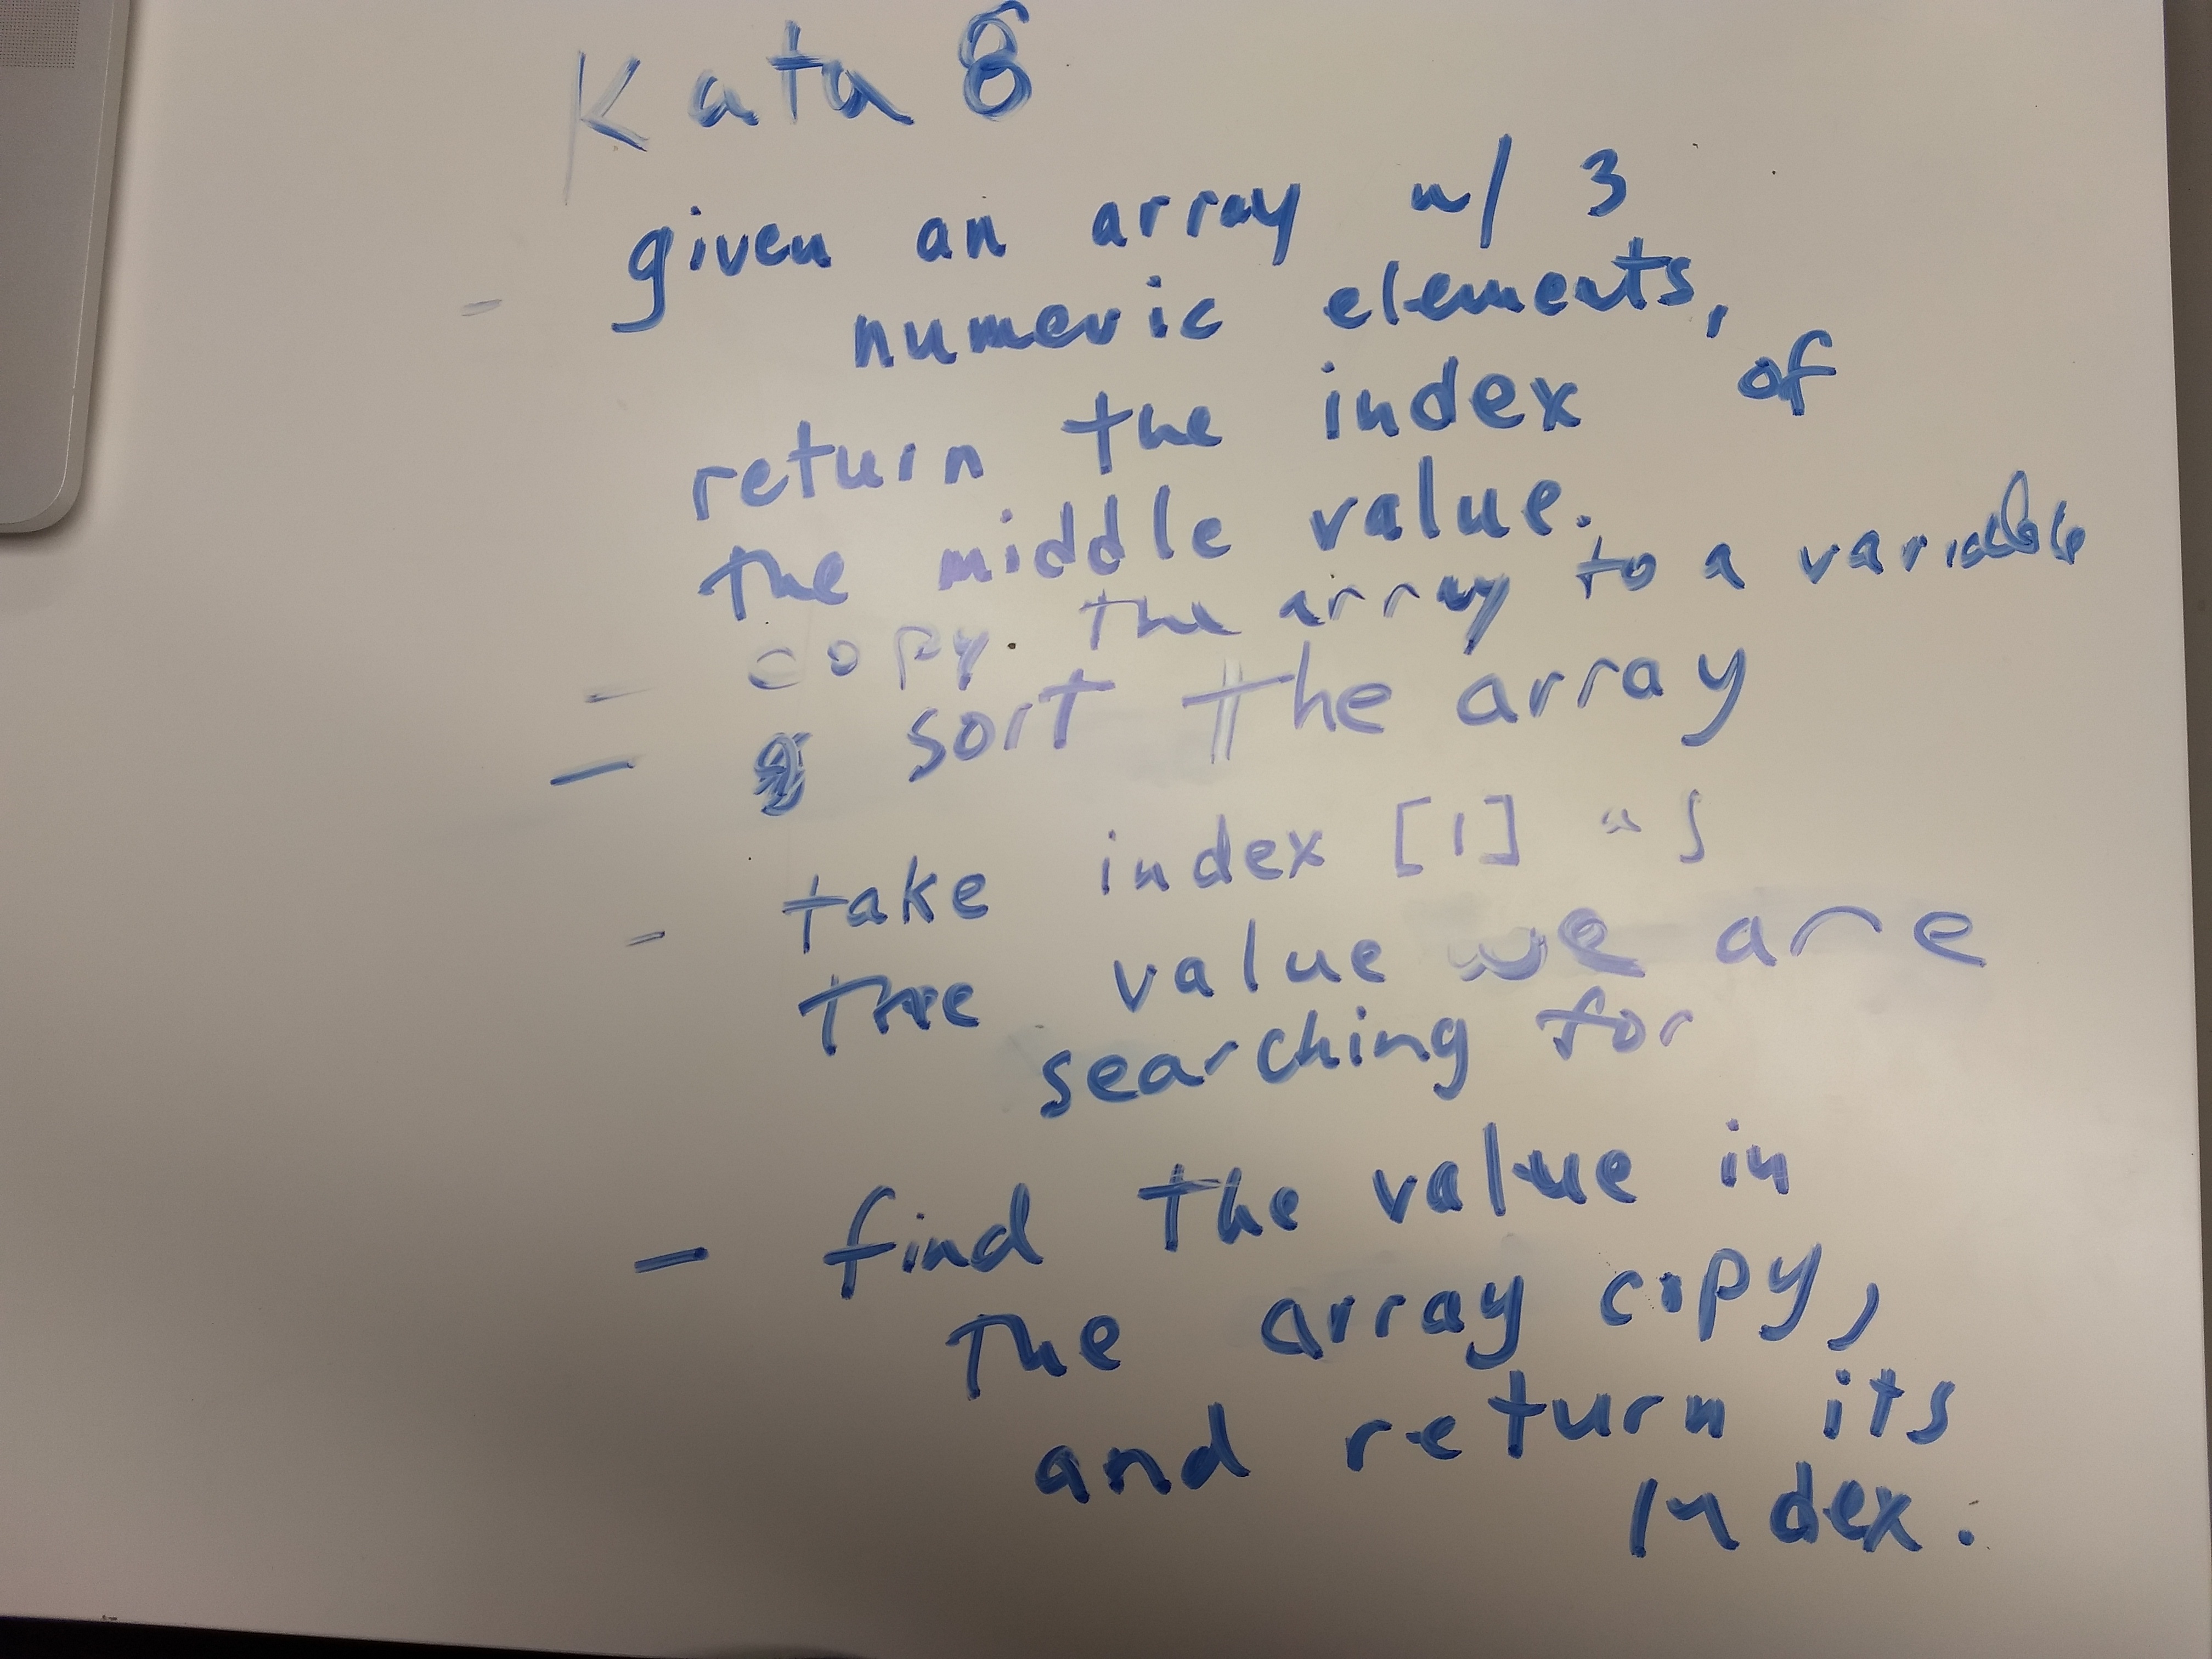 Kata 8
- given an array w/ 3
numeric elements,
return the index of
the middle value.
- copy the array to a variable
- sort the array
- take index [1] as
the value we are
searching for
- find the value in
the array copy,
and return its
index.